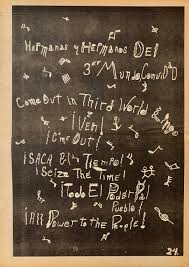 Hermanas y Hermanos DEl
3er Mundo
Come Out in Third World
¡Ven!
¡Cme Out!
¡SACA El Tiempo!
¡Seize The Time!
¡Todo El Poder Pa
Pueblo!
¡All Power to the People!
24